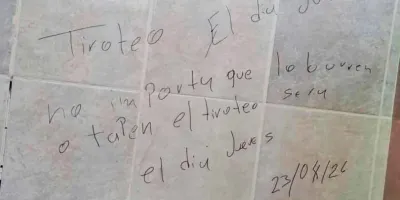 Tiroteo El dia
no importa que lo borren
o tapen el tiroteo sera
el dia Jueves
23/04/26